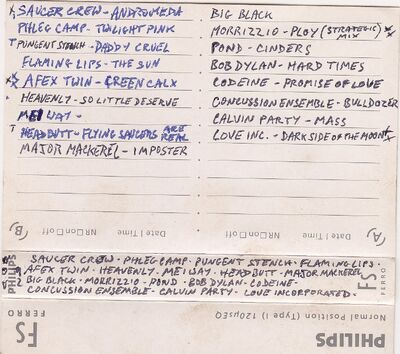 SAUCER CREW - ANDROMEDA
PHLEG CAMP - TWILIGHT PINK
PUNGENT STENCH - DADDY CRUEL
FLAMING LIPS - THE SUN
APEX TWIN - GREEN CALX
HEAVENLY - SO LITTLE DESERVE
MEIWAY -
HEADBUTT - FLYING SAUCERS ARE REAL
MAJOR MACKEREL - IMPOSTER
BIG BLACK
MORRIZZIO - PLOY (STRATEGIC) MIX
POND - CINDERS
BOB DYLAN - HARD TIMES
CODEINE - PROMISE OF LOVE
CONCUSSION ENSEMBLE - BULLDOZER
CALVIN PARTY - MASS
LOVE INC. - DARK SIDE OF THE MOON
B) Date | Time NR □ on □ off
A) Date | Time NR □ on □ off
SAUCER CREW · PHLEG CAMP · PUNGENT STENCH · FLAMING LIPS ·
AFEX TWIN · HEAVENLY · MEIWAY · HEADBUTT · MAJOR MACKEREL
BIG BLACK · MORRIZZIO · POND · BOB DYLAN · CODEINE ·
CONCUSSION ENSEMBLE · CALVIN PARTY · LOVE INCORPORATED ·
PHILIPS
FS
FERRO
PHILIPS
Normal Position (Type I) 120µSEQ
FS
FERRO